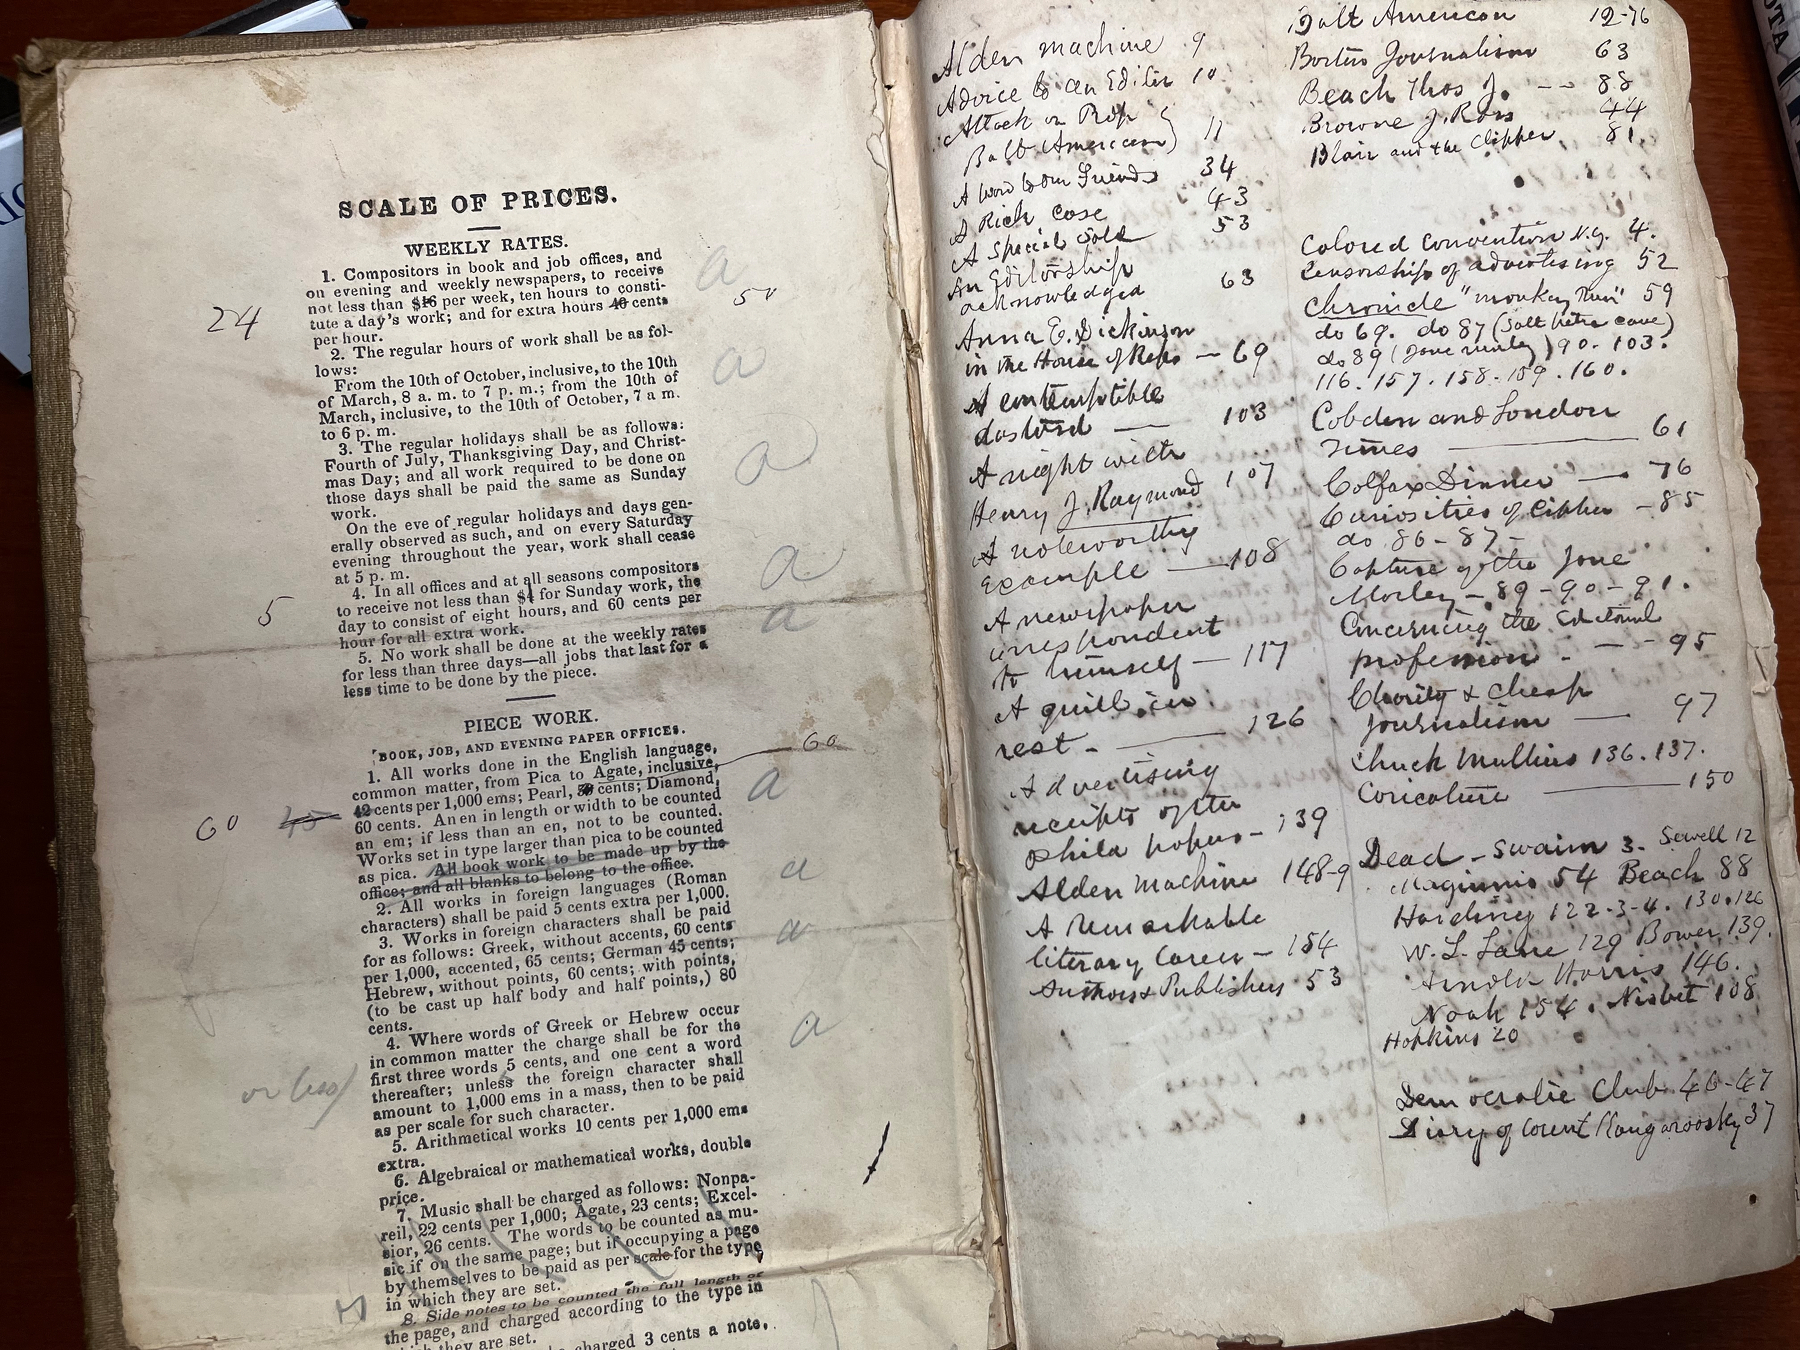 SCALE OF PRICES.
WEEKLY RATES.
1. Compositors in book and job offices, and
on evening and weekly newspapers, to receive
not less than $16 per week, ten hours to consti-
tute a day's work; and for extra hours 40 cents
per hour.
24
50
2. The regular hours of work shall be as fol-
lows:
From the 10th of October, inclusive, to the 10th
of March, 8 a. m. to 7 p. m.; from the 10th of
March, inclusive, to the 10th of October, 7 a m.
to 6 p. m.
3. The regular holidays shall be as follows:
Fourth of July, Thanksgiving Day, and Christ-
mas Day; and all work required to be done on
those days shall be paid the same as Sunday
work.
On the eve of regular holidays and days gen-
erally observed as such, and on every Saturday
evening throughout the year, work shall cease
at 5 p. m.
4. In all offices and at all seasons compositors
to receive not less than $4 for Sunday work, the
day to consist of eight hours, and 60 cents per
hour for all extra work.
5
5. No work shall be done at the weekly rates
for less than three days—all jobs that last for a
less time to be done by the piece.
a
a
a
a
a
PIECE WORK.
BOOK, JOB, AND EVENING PAPER OFFICES.
1. All works done in the English language,
common matter, from Pica to Agate, inclusive,
42 cents per 1,000 ems; Pearl, cents; Diamond,
60 cents. An en in length or width to be counted
an em; if less than an en, not to be counted.
Works set in type larger than pica to be counted
as pica. All book work to be made up by the
office; and all blanks to belong to the office.
60
60 45
2. All works in foreign languages (Roman
characters) shall be paid 5 cents extra per 1,000.
3. Works in foreign characters shall be paid
for as follows: Greek, without accents, 60 cents
per 1,000, accented, 65 cents; German 45 cents;
Hebrew, without points, 60 cents; with points,
(to be cast up half body and half points,) 80
cents.
4. Where words of Greek or Hebrew occur
in common matter the charge shall be for the
first three words 5 cents, and one cent a word
thereafter; unless the foreign character shall
amount to 1,000 ems in a mass, then to be paid
as per scale for such character.
or less
5. Arithmetical works 10 cents per 1,000 ems
extra.
6. Algebraical or mathematical works, double
price.
7. Music shall be charged as follows: Nonpa-
reil, 22 cents per 1,000; Agate, 23 cents; Excel-
sior, 26 cents. The words to be counted as mu-
sic if on the same page; but if occupying a page
by themselves to be paid as per scale for the type
in which they are set.
8. Side notes to be counted the full length of
the page, and charged according to the type in
which they are set.
charged 3 cents a note,
a
a
a
a
Alden machine 9
Advice to an Editor 10
Attack on Prop
Balt American } 11
A word to our Friends 34
A Rich case 43
A Special Sale 53
An Editorship
acknowledged 63
Anna E. Dickinson
in the House of Reps — 69
A contemptible
dastard — 103
A night with
Henry J. Raymond 107
A noteworthy
example — 108
A newspaper
correspondent
to himself — 117
A quill in
rest - — 126
Advertising
receipts of the
Phila papers - 139
Alden Machine 148-9
A Remarkable
literary Career — 154
Authors & Publishers 53
Balt American 12-76
Boston Journalism 63
Beach Thos J. -- 88
Browne J. Ross 44
Blair and the Clipper 81.
Colored Convention N.Y. 4.
Censorship of advertising 52
Chronicle "monkey Thun" 59
do 69. do 87 (Salt Petre cave)
do 89 (Jone Morley) 90. 103.
116. 157. 158. 159. 160.
Cobden and London
Times — 61
Colfax Dinner — 76
Curiosities of Cipher - 85
do 86 - 87 -
Capture of the Jone
Morley - 89 - 90 - 91.
Concerning the Editorial
profession. - - - 95
Charity & Cheap
Journalism — 97
Chuck Mullins 136. 137.
Caricature — 150
Dead - Swaim 3. Sewell 12
Maginnis 54 Beach 88
Harding 122-3-4. 130. 126
W. L. Lane 129 Bower 139.
Arnold Harris 146.
Noah 154. Nisbet 108
Hopkins 20
Democratic Club 46-47
Diary of Count Kangaroosky 37